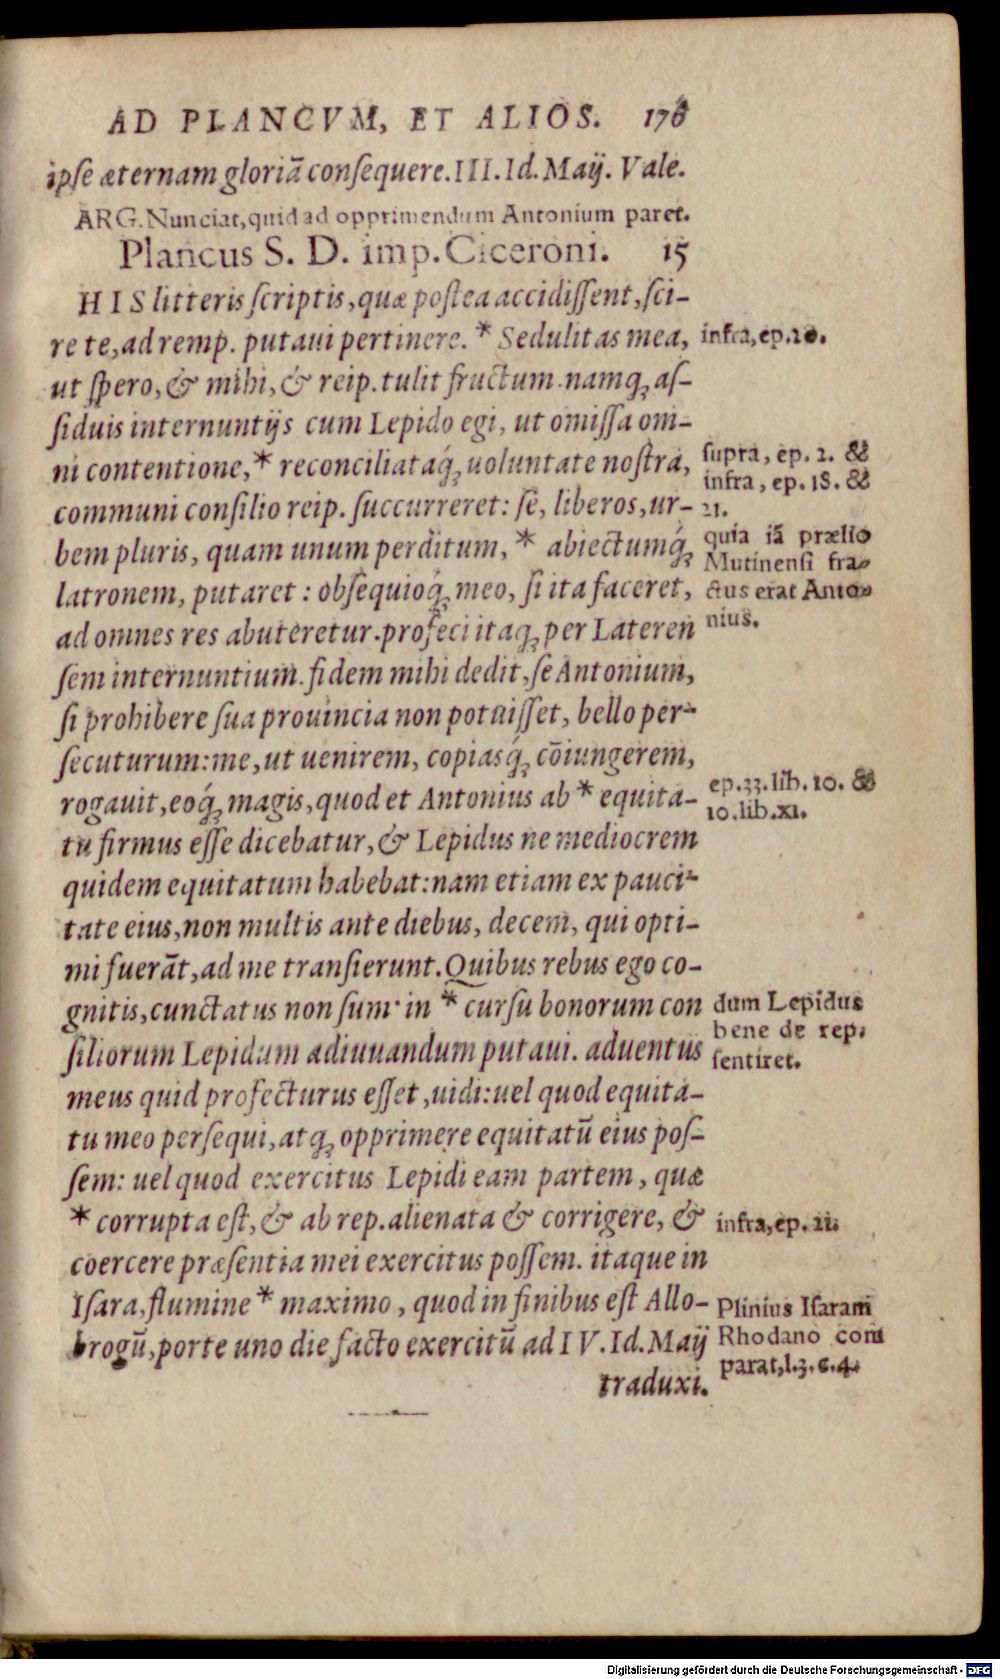 AD PLANCVM, ET ALIOS. 176
ipſe æternam gloriã conſequere. III. Id. Maÿ. Vale.
ARG. Nunciat, quid ad opprimendum Antonium paret.
Plancus S. D. imp. Ciceroni. 15
HIS litteris ſcriptis, quæ poſtea accidiſſent, ſci-
re te, ad remp. putaui pertinere. * Sedulitas mea,
infra, ep. 20.
ut ſpero, & mihi, & reip. tulit fructum. namq; aſ-
ſiduis internuntijs cum Lepido egi, ut omiſſa om-
ni contentione, * reconciliataq́; uoluntate noſtra,
communi conſilio reip. ſuccurreret: ſe, liberos, ur-
bem pluris, quam unum perditum, * abiectumq́;
latronem, putaret: obſequioq́; meo, ſi ita faceret,
ad omnes res abuteretur. profeci itaq; per Lateren
supra, ep. 2. &
infra, ep. 18. &
21.
quia iã prælio
Mutinensi fra-
ctus erat Anto-
nius.
ſem internuntium. fidem mihi dedit, ſe Antonium,
ſi prohibere ſua prouincia non potuiſſet, bello per-
ſecuturum: me, ut uenirem, copiasq́; cõiungerem,
rogauit, eoq́; magis, quod et Antonius ab * equita-
ep. 33. lib. 10. &
10. lib. XI.
tu firmus eſſe dicebatur, & Lepidus ne mediocrem
quidem equitatum habebat: nam etiam ex pauci-
tate eius, non multis ante diebus, decem, qui opti-
mi fuerãt, ad me tranſierunt. Quibus rebus ego co-
gnitis, cunctatus non ſum· in * curſu bonorum con
ſiliorum Lepidum adiuuandum putaui. aduentus
dum Lepidus
bene de rep.
ſentiret.
meus quid profecturus eſſet, uidi: uel quod equita-
tu meo perſequi, atq; opprimere equitatũ eius poſ-
ſem: uel quod exercitus Lepidi eam partem, quæ
* corrupta eſt, & ab rep. alienata & corrigere, &
infra, ep. 21.
coercere præſentia mei exercitus poſſem. itaque in
Iſara, flumine * maximo, quod in finibus eſt Allo-
brogũ, porte uno die facto exercitũ ad IV. Id. Maÿ
Plinius Iſaram
Rhodano com
parat, l. 3. c. 4.
traduxi.
Digitalisierung gefördert durch die Deutsche Forschungsgemeinschaft - DFG